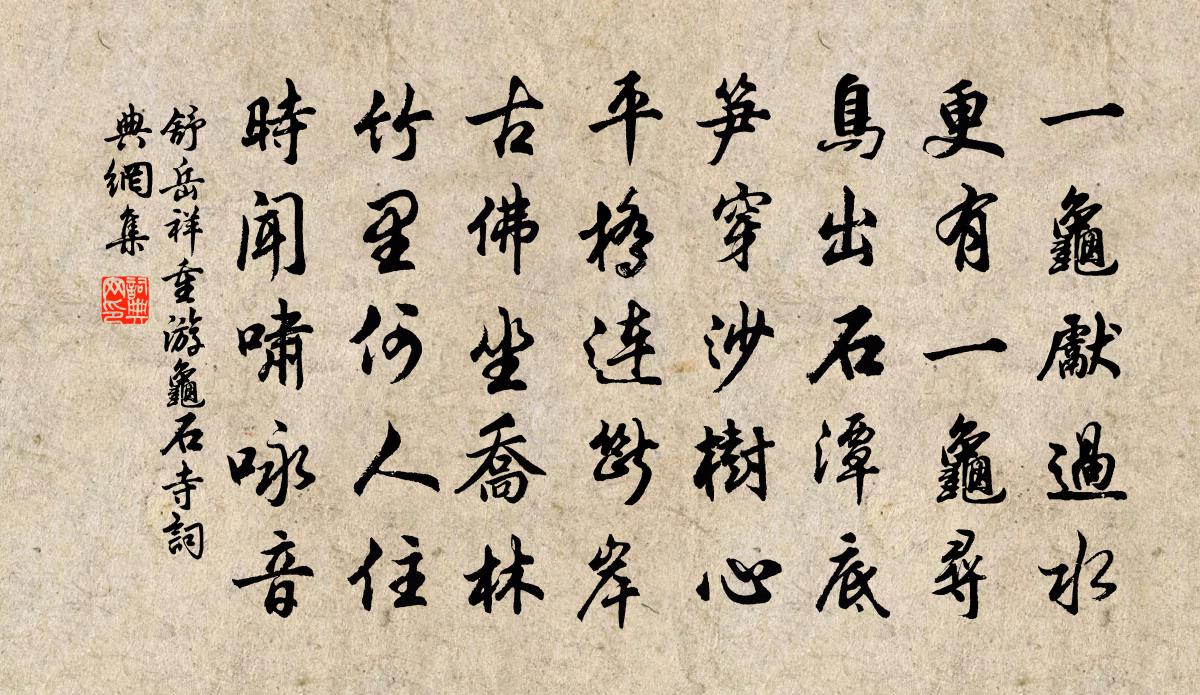 一龜獻過水
更有一龜尋
鳧出石潭底
笋穿沙樹心
平橋連斷岸
古佛坐喬林
竹里何人住
時聞嘯咏音
舒岳祥重游龜石寺詞
典網集
詞典
网印